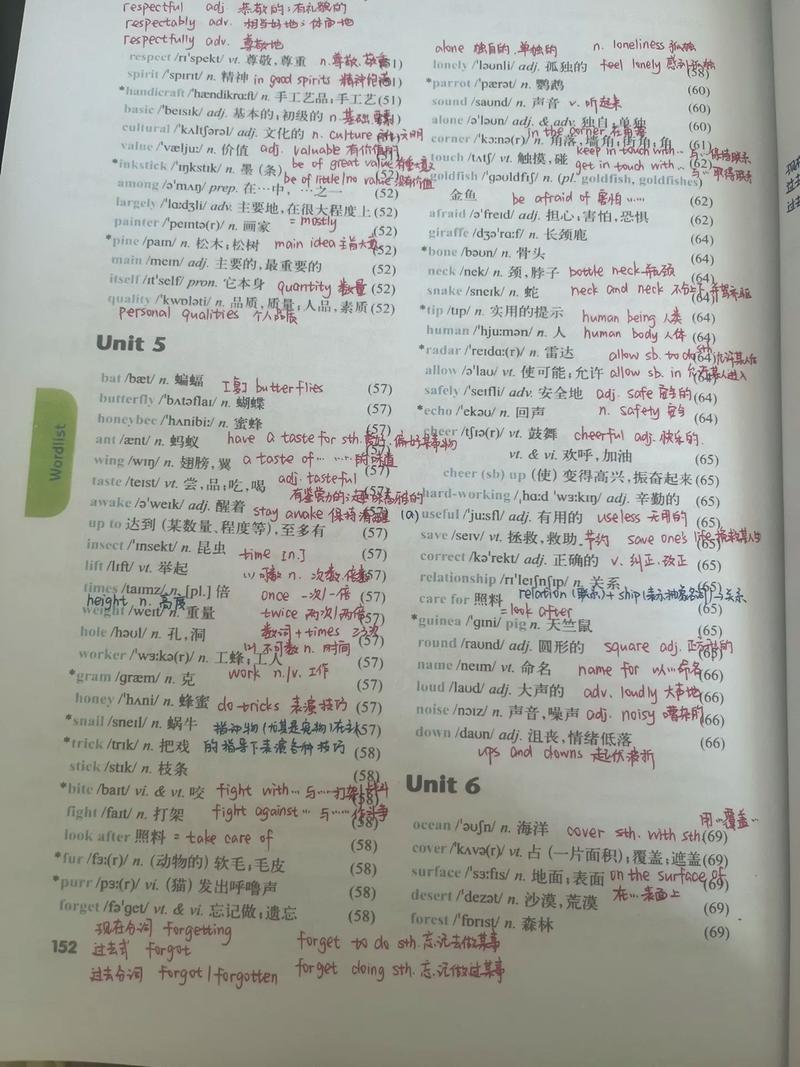 respectful adj. 恭敬的；有礼貌的
respectably adv. 相当好地；体面地
respectfully adv. 尊敬地
respect /rɪ'spekt/ vt. 尊敬,尊重 n.尊敬,敬重 (51)
spirit /'spɪrɪt/ n. 精神 in good spirits 精神饱满
*handicraft /'hændikrɑːft/ n. 手工艺品；手工艺(51)
basic /'beɪsɪk/ adj. 基本的；初级的 n.基础,要素
cultural /'kʌltʃərəl/ adj. 文化的 n. culture 文明
value /'væljuː/ n. 价值 adj. valuable 有价值的
be of great value 有重大意义
*inkstick /'ɪŋkstɪk/ n. 墨（条）
be of little/no value 没有价值
among /ə'mʌŋ/ prep. 在…中，…之一 (52)
largely /'lɑːdʒli/ adv. 主要地,在很大程度上 (52)
= mostly
painter /'peɪntə(r)/ n. 画家 (52)
*pine /paɪn/ n. 松木；松树 main idea 主旨大意 (52)
main /meɪn/ adj. 主要的,最重要的 (52)
itself /ɪt'self/ pron. 它本身 quantity 数量 (52)
quality /'kwɒləti/ n. 品质,质量；人品,素质 (52)
personal qualities 个人品质
Unit 5
bat /bæt/ n. 蝙蝠 (57)
[复] butterflies
butterfly /'bʌtəflaɪ/ n. 蝴蝶 (57)
honeybee /'hʌnibiː/ n. 蜜蜂 (57)
ant /ænt/ n. 蚂蚁 have a taste for sth. 爱好,偏好某事物
wing /wɪŋ/ n. 翅膀,翼 a taste of …… 的味道
taste /teɪst/ vt. 尝,品；吃,喝 adj. tasteful (57)
有鉴赏力的；趣味高雅的
awake /ə'weɪk/ adj. 醒着 stay awake 保持清醒 (a)
up to 达到（某数量、程度等）,至多有 (57)
insect /'ɪnsekt/ n. 昆虫 (57)
time [n.]
lift /lɪft/ vt. 举起 (1) 可数 n. 次数,倍数
times /taɪmz/ n. [pl.] 倍 once 一次/一倍 (57)
height n. 高度
weight /weɪt/ n. 重量 twice 两次/两倍 (57)
hole /həʊl/ n. 孔,洞 数词+times
worker /'wɜːkə(r)/ n. 工蜂；工人 (2) 不可数 n. 时间
*gram /græm/ n. 克 work n./v. 工作 (57)
honey /'hʌni/ n. 蜂蜜 do tricks 表演技巧 (57)
*snail /sneɪl/ n. 蜗牛 指动物(尤其是宠物)在主人 57)
*trick /trɪk/ n. 把戏 的指导下表演各种技巧 (58)
stick /stɪk/ n. 枝条 (58)
*bite /baɪt/ vi. & vt. 咬 fight with… 与……打架/战斗
fight /faɪt/ n. 打架 fight against… 与……作斗争
look after 照料 = take care of (58)
*fur /fɜː(r)/ n. （动物的）软毛；毛皮 (58)
*purr /pɜː(r)/ vi. （猫）发出呼噜声 (58)
forget /fə'get/ vt. & vi. 忘记做；遗忘 (58)
现在分词 forgetting
过去式 forgot
过去分词 forgot/forgotten
forget to do sth. 忘记去做某事
forget doing sth. 忘记做过某事
152
Wordlist
alone 独自的,单独的 n. loneliness 孤独
lonely /'ləʊnli/ adj. 孤独的 feel lonely 感到孤独 (58)
*parrot /'pærət/ n. 鹦鹉 (60)
sound /saʊnd/ n. 声音 v. 听起来 (60)
alone /ə'ləʊn/ adj. & adv. 独自；单独 (60)
in the corner 在角落
corner /'kɔːnə(r)/ n. 角落,墙角；街角；角 (61)
keep in touch with… 与…保持联系
touch /tʌtʃ/ vt. 触摸,碰 get in touch with… 与…取得联系 (62)
*goldfish /'gəʊldfɪʃ/ n. (pl. goldfish, goldfishes)
金鱼 be afraid of 害怕…… (62)
afraid /ə'freɪd/ adj. 担心；害怕,恐惧 (62)
giraffe /dʒə'rɑːf/ n. 长颈鹿 (64)
*bone /bəʊn/ n. 骨头 (64)
neck /nek/ n. 颈,脖子 bottle neck 瓶颈 (64)
snake /sneɪk/ n. 蛇 neck and neck 不分上下,并驾齐驱
*tip /tɪp/ n. 实用的提示 human being 人类 (64)
human /'hjuːmən/ n. 人 human body 人体 (64)
*radar /'reɪdɑː(r)/ n. 雷达 allow sb. to do sth 允许某人做
allow /ə'laʊ/ vt. 使可能；允许 allow sb. in 允许某人进入
safely /'seɪfli/ adv. 安全地 adj. safe 安全的 (64)
*echo /'ekəʊ/ n. 回声 n. safety 安全 (64)
cheer /tʃɪə(r)/ vt. 鼓舞 cheerful adj. 快乐的.
vt. & vi. 欢呼,加油 (65)
cheer (sb) up （使）变得高兴，振奋起来 (65)
hard-working /ˌhɑːd 'wɜːkɪŋ/ adj. 辛勤的 (65)
useful /'juːsfl/ adj. 有用的 useless 无用的 (65)
save /seɪv/ vt. 拯救,救助 节约 save one's life 拯救某人的
correct /kə'rekt/ adj. 正确的 v. 纠正.改正 (65)
relationship /rɪ'leɪʃnʃɪp/ n. 关系 (65)
relation (联系) + ship
care for 照料 = look after (65)
*guinea /'gɪni/ pig n. 天竺鼠 (65)
round /raʊnd/ adj. 圆形的 square adj. 正方形的
name /neɪm/ vt. 命名 name for 以…命名 (66)
loud /laʊd/ adj. 大声的 adv. loudly 大声地 (66)
noise /nɔɪz/ n. 声音,噪声 adj. noisy 嘈杂的 (66)
down /daʊn/ adj. 沮丧,情绪低落 (66)
ups and downs 起伏波折
Unit 6
用…覆盖…
ocean /'əʊʃn/ n. 海洋 cover sth. with sth (69)
cover /'kʌvə(r)/ vt. 占（一片面积）；覆盖；遮盖 (69)
surface /'sɜːfɪs/ n. 地面；表面 on the surface of (69)
desert /'dezət/ n. 沙漠,荒漠 在…表面上 (69)
forest /'fɒrɪst/ n. 森林 (69)